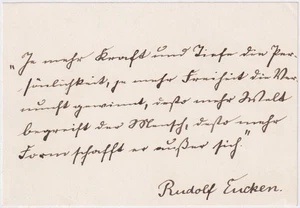 „Je mehr Kraft und Tiefe die Per-
sönlichkeit, je mehr Freiheit die Ver-
nunft gewinnt, desto mehr Welt
begreift der Mensch, desto mehr
Form schafft er außer sich"
Rudolf Eucken.